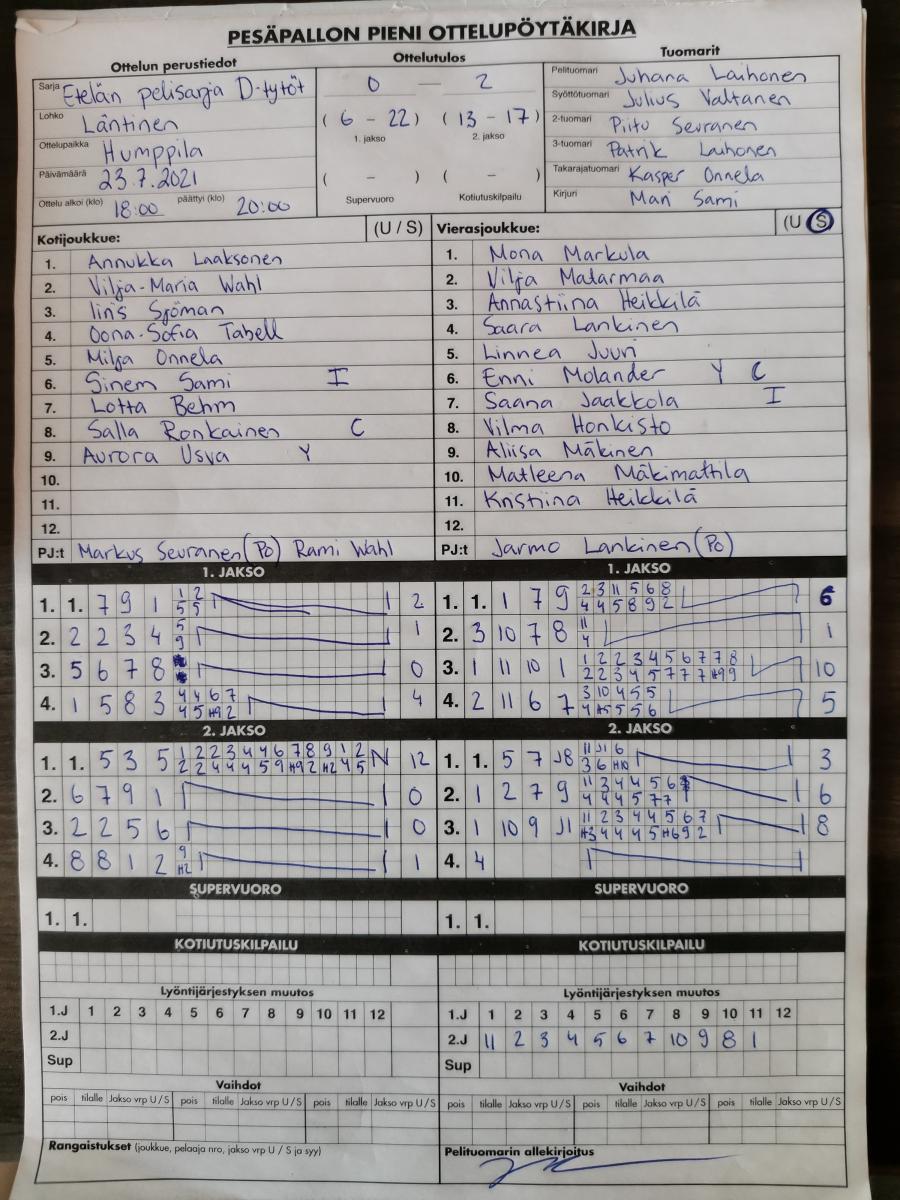 PESÄPALLON PIENI OTTELUPÖYTÄKIRJA
Ottelun perustiedot
Ottelutulos
Tuomarit
Sarja Etelän pelisarja D-tytöt
Lohko Läntinen
Ottelupaikka Humppila
Päivämäärä 23.7.2021
Ottelu alkoi (klo) 18:00 päättyi (klo) 20:00
0 — 2
( 6 - 22 ) ( 13 - 17 )
1. jakso 2. jakso
( - ) ( - )
Supervuoro Kotiutuskilpailu
Pelituomari Juhana Laihonen
Syöttötuomari Julius Valtanen
2-tuomari Piitu Seuranen
3-tuomari Patrik Laihonen
Takarajatuomari Kasper Onnela
Kirjuri Mari Sami
Kotijoukkue: (U / S)
1. Annukka Laaksonen
2. Vilja-Maria Wahl
3. Iiris Sjöman
4. Oona-Sofia Tabell
5. Milja Onnela
6. Sinem Sami I
7. Lotta Behm
8. Salla Ronkainen C
9. Aurora Usva Y
10.
11.
12.
PJ:t Markus Seuranen (Po) Rami Wahl
Vierasjoukkue: (U S)
1. Mona Markula
2. Vilja Matarmaa
3. Annastiina Heikkilä
4. Saara Lankinen
5. Linnea Juuri
6. Enni Molander Y C
7. Saana Jaakkola I
8. Vilma Honkisto
9. Aliisa Mäkinen
10. Matleena Mäkimattila
11. Kristiina Heikkilä
12.
PJ:t Jarmo Lankinen (Po)
1. JAKSO
1. 1. 7 9 1 1 2 2
5 5
2. 2 2 3 4 5 1
9
3. 5 6 7 8 0
4. 1 5 8 3 4 4 6 7 4
4 5 H9 2
2. JAKSO
1. 1. 5 3 5 1 2 2 3 4 4 6 7 8 9 1 2 N 12
2 2 4 4 4 5 9 H9 2 H2 4 5
2. 6 7 9 1 0
3. 2 2 5 6 0
4. 8 8 1 2 9 1
H2
SUPERVUORO
1. 1.
KOTIUTUSKILPAILU
1. JAKSO
1. 1. 1 7 9 2 3 11 5 6 8 6
4 4 5 8 9 2
2. 3 10 7 8 11 1
4
3. 1 11 10 1 1 2 2 3 4 5 6 7 7 8 10
2 2 3 4 5 7 7 7 H9 9
4. 2 11 6 7 3 10 4 5 5 5
4 H5 5 5 6
2. JAKSO
1. 1. 5 7 J8 11 J1 6 3
3 6 H10
2. 1 2 7 9 11 3 4 4 5 6 6
4 4 4 5 7 7
3. 1 10 9 J1 11 2 3 4 4 5 6 7 8
H3 4 4 4 5 H6 9 2
4. 4
SUPERVUORO
1. 1.
KOTIUTUSKILPAILU
Lyöntijärjestyksen muutos
1.J 1 2 3 4 5 6 7 8 9 10 11 12
2.J
Sup
Vaihdot
pois tilalle Jakso vrp U / S pois tilalle Jakso vrp U / S pois tilalle Jakso vrp U / S
Rangaistukset (joukkue, pelaaja nro, jakso vrp U / S ja syy)
Lyöntijärjestyksen muutos
1.J 1 2 3 4 5 6 7 8 9 10 11 12
2.J 11 2 3 4 5 6 7 10 9 8 1
Sup
Vaihdot
pois tilalle Jakso vrp U / S pois tilalle Jakso vrp U / S pois tilalle Jakso vrp U / S
Pelituomarin allekirjoitus